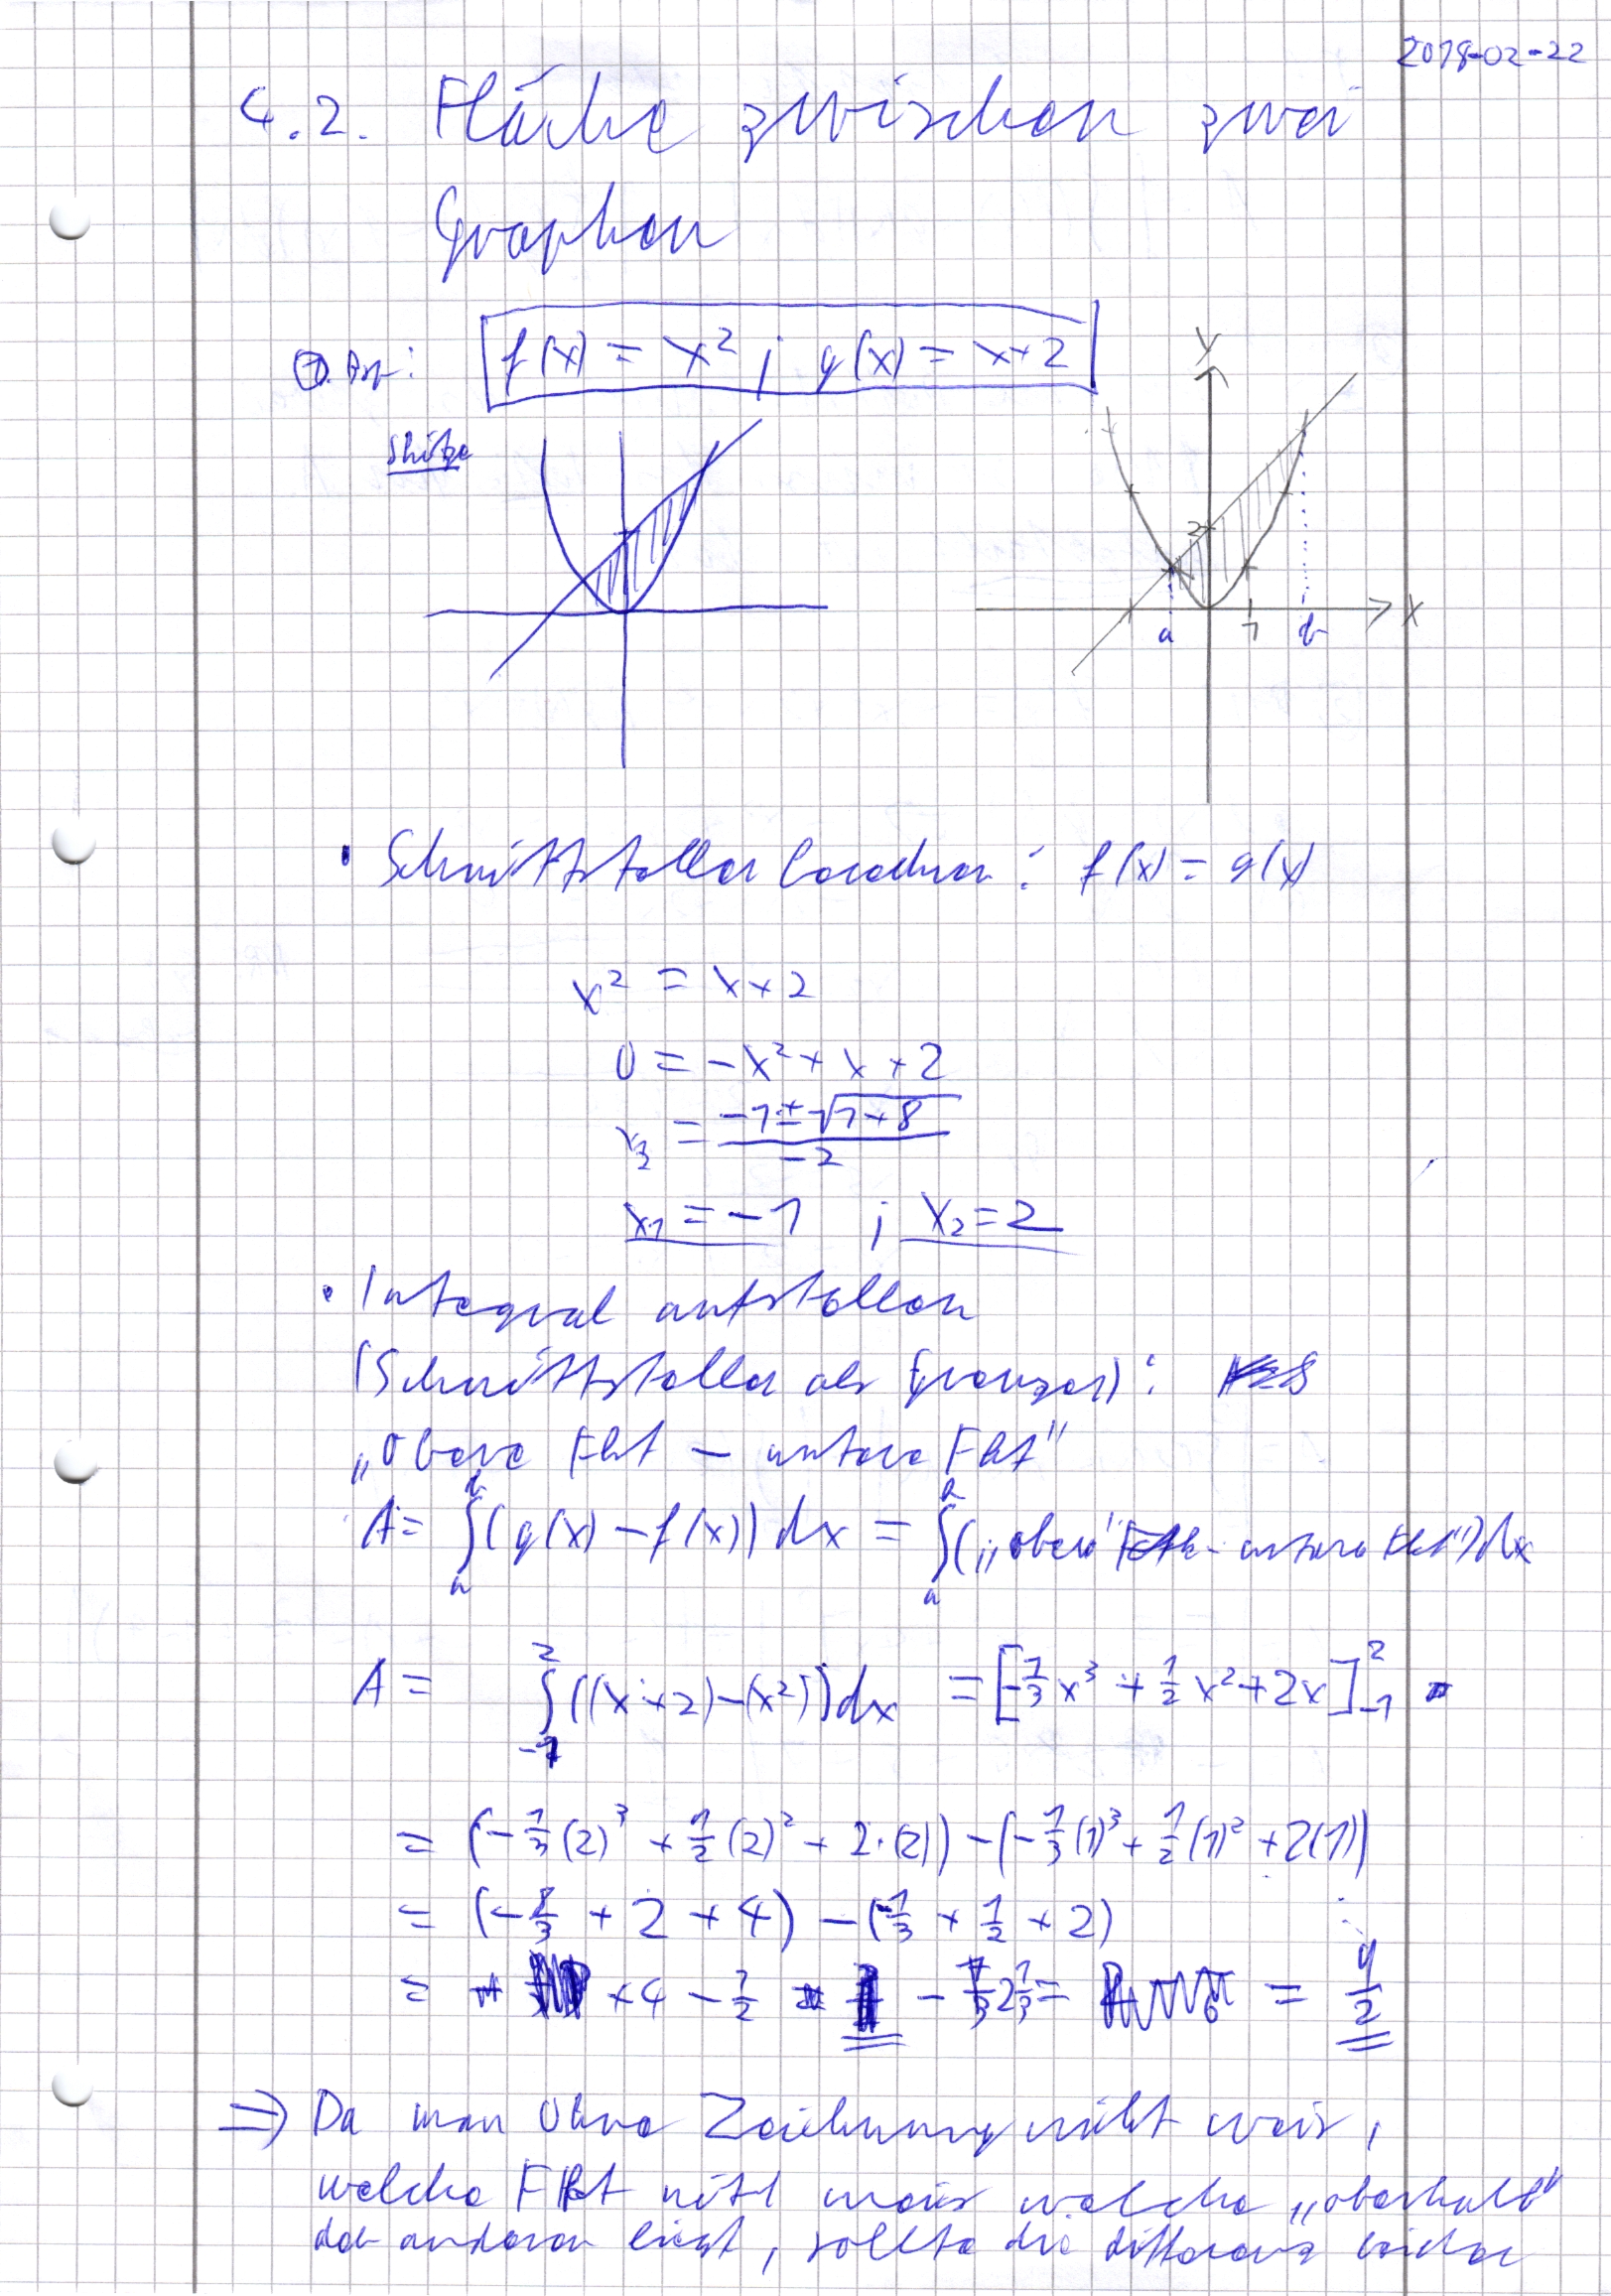 2018-02-22
4.2. Fläche zwischen zwei
Graphen
1. Bsp.: f(x) = x² ; g(x) = x+2
Skizze
y
2
a 1 b x
• Schnittstellen berechnen: f(x) = g(x)
x² = x+2
0 = -x² + x + 2
x½ = (-1 ± √(1+8)) / -2
x₁ = -1 ; x₂ = 2
• Integral aufstellen
(Schnittstellen als Grenzen):
„Obere Fkt – untere Fkt"
A = ∫ₐᵇ (g(x) – f(x)) dx = ∫ₐᵇ („obere" Fkt - untere Fkt") dx
A = ∫₋₁² ((x+2)-(x²)) dx = [-⅓x³ + ½x² + 2x]₋₁²
= (-⅓(2)³ + ½(2)² + 2·(2)) - (-⅓(1)³ + ½(1)² + 2(1))
= (-8/3 + 2 + 4) - (-⅓ + ½ + 2)
= +4 - ½ - 2⅓ = = 9/2
⇒ Da man Ohne Zeichnung nicht weis,
welche Fkt weis welche „oberhalb"
der anderen liegt, sollte die differenz beider